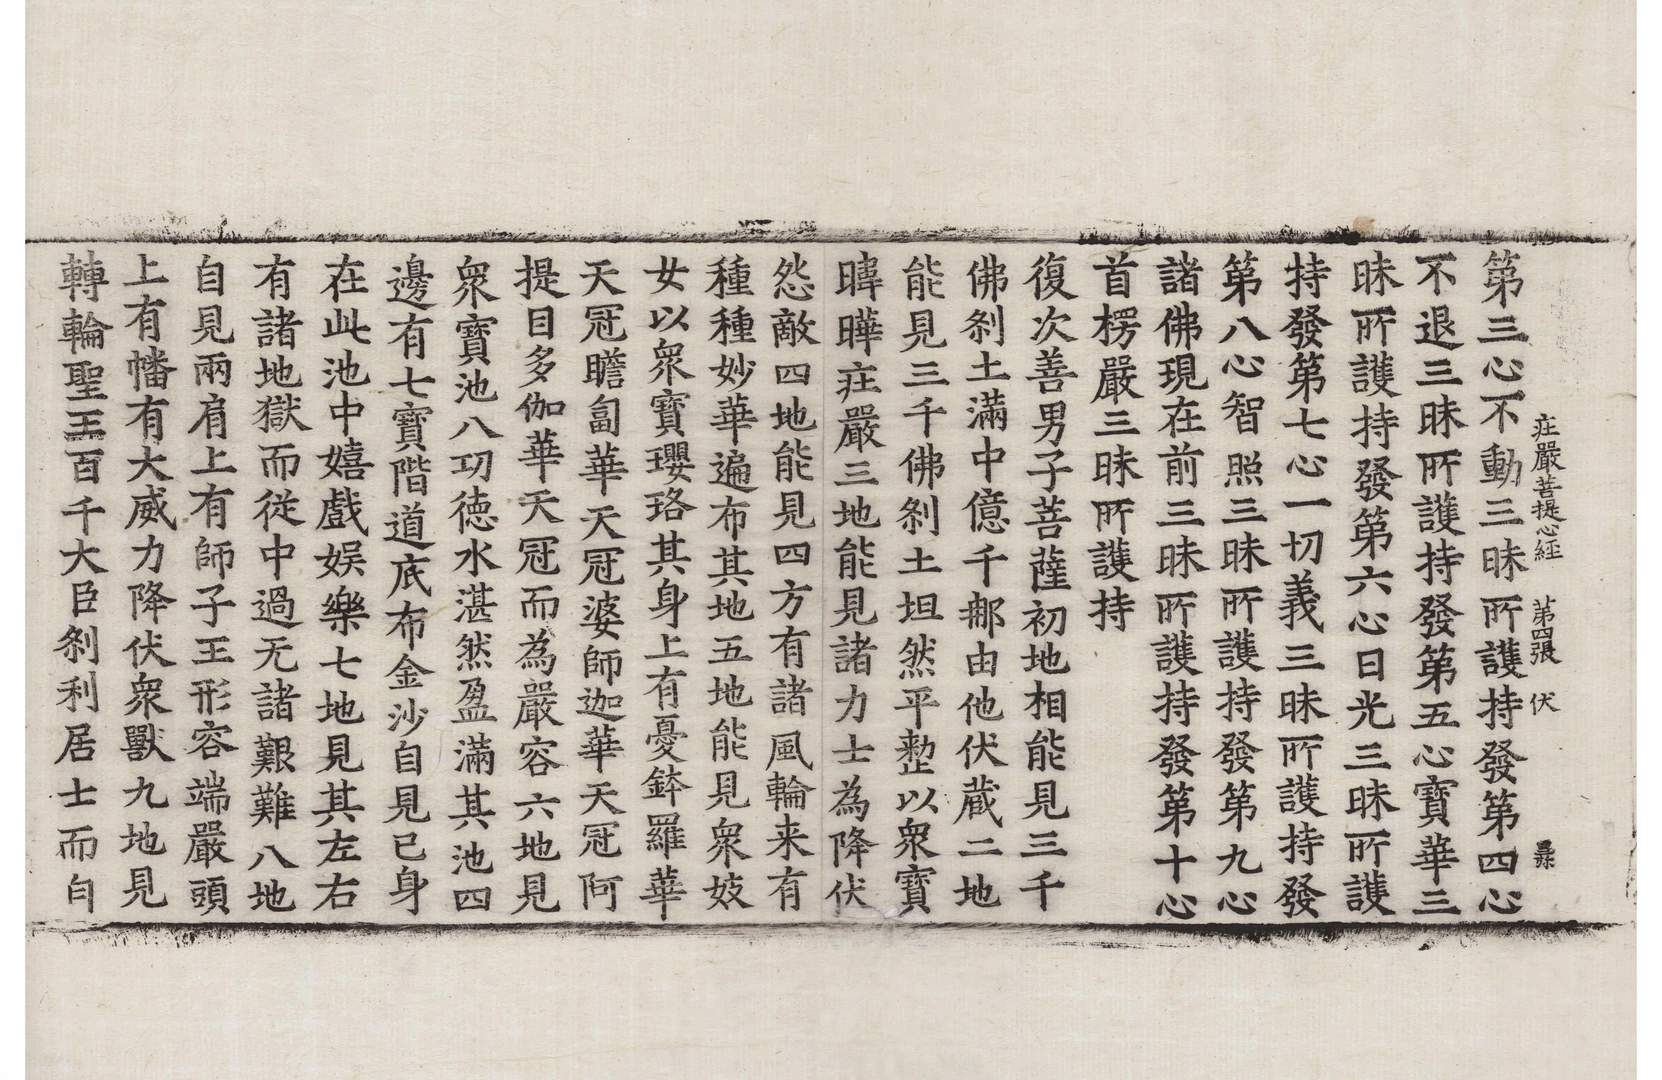 庄嚴菩提心經 第四張 伏
第三心不動三昧所護持發第四心
不退三昧所護持發第五心寶華三
昧所護持發第六心日光三昧所護
持發第七心一切義三昧所護持發
第八心智照三昧所護持發第九心
諸佛現在前三昧所護持發第十心
首楞嚴三昧所護持
復次善男子菩薩初地相能見三千
佛刹土滿中億千那由他伏藏二地
能見三千佛刹土坦然平整以衆寶
暐曄庄嚴三地能見諸力士為降伏
怨敵四地能見四方有諸風輪来有
種種妙華遍布其地五地能見衆妓
女以衆寶瓔珞其身上有憂鉢羅華
天冠瞻匐華天冠婆師迦華天冠阿
提目多伽華天冠而為嚴容六地見
衆寶池八功德水湛然盈滿其池四
邊有七寶階道底布金沙自見已身
在此池中嬉戲娛樂七地見其左右
有諸地獄而從中過无諸艱難八地
自見兩肩上有師子王形容端嚴頭
上有幡有大威力降伏衆獸九地見
轉輪聖王百千大臣刹利居士而自